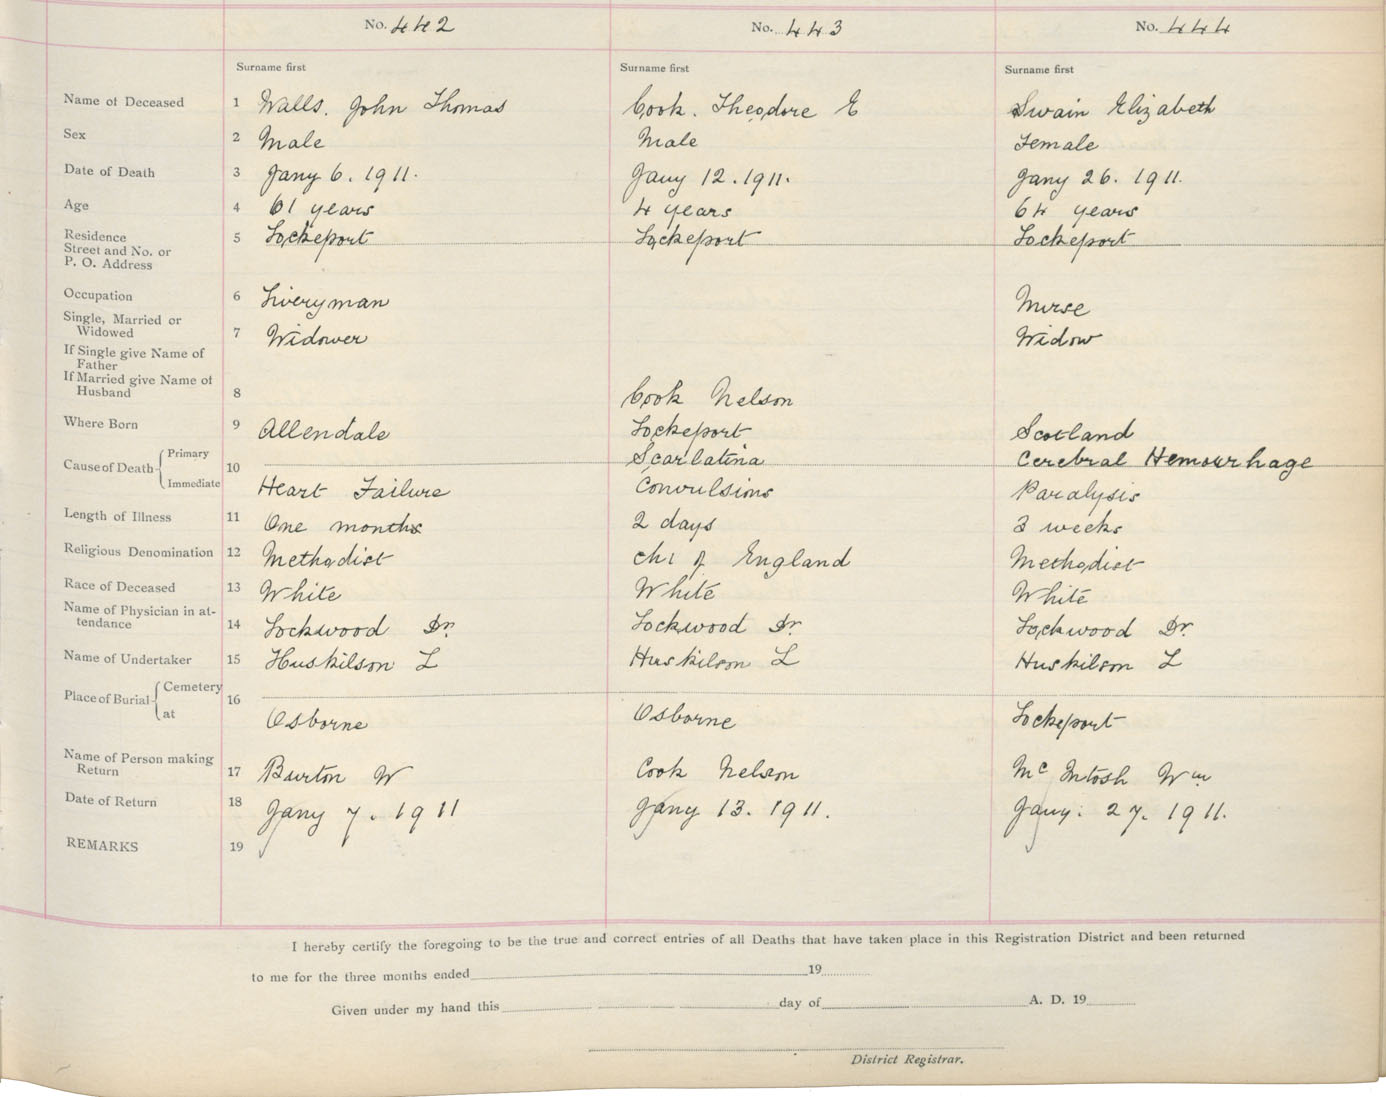 No. 442 No. 443 No. 444
Surname first Surname first Surname first
Name of Deceased 1 Walls. John Thomas Cook. Theodore E Swain Elizabeth
Sex 2 Male Male Female
Date of Death 3 Jany 6. 1911. Jany 12. 1911. Jany 26. 1911.
Age 4 61 years 4 years 64 years
Residence
Street and No. or
P. O. Address 5 Lockeport Lockeport Lockeport
Occupation 6 Liveryman Nurse
Single, Married or
Widowed 7 Widower Widow
If Single give Name of
Father
If Married give Name of
Husband 8 Cook Nelson
Where Born 9 Allendale Lockeport Scotland
Cause of Death 10 Primary Scarlatina Cerebral Hemourhage
Immediate Heart Failure Convulsions Paralysis
Length of Illness 11 One months 2 days 3 weeks
Religious Denomination 12 Methodist Ch of England Methodist
Race of Deceased 13 White White White
Name of Physician in at-
tendance 14 Lockwood Dr. Lockwood Dr. Lockwood Dr.
Name of Undertaker 15 Huskilson L Huskilson L Huskilson L
Place of Burial 16 Cemetery
at Osborne Osborne Lockeport
Name of Person making
Return 17 Burton W Cook Nelson Mc Intosh Wm
Date of Return 18 Jany 7. 1911 Jany 13. 1911. Jany. 27. 1911.
REMARKS 19
I hereby certify the foregoing to be the true and correct entries of all Deaths that have taken place in this Registration District and been returned
to me for the three months ended 19
Given under my hand this day of A. D. 19
District Registrar.